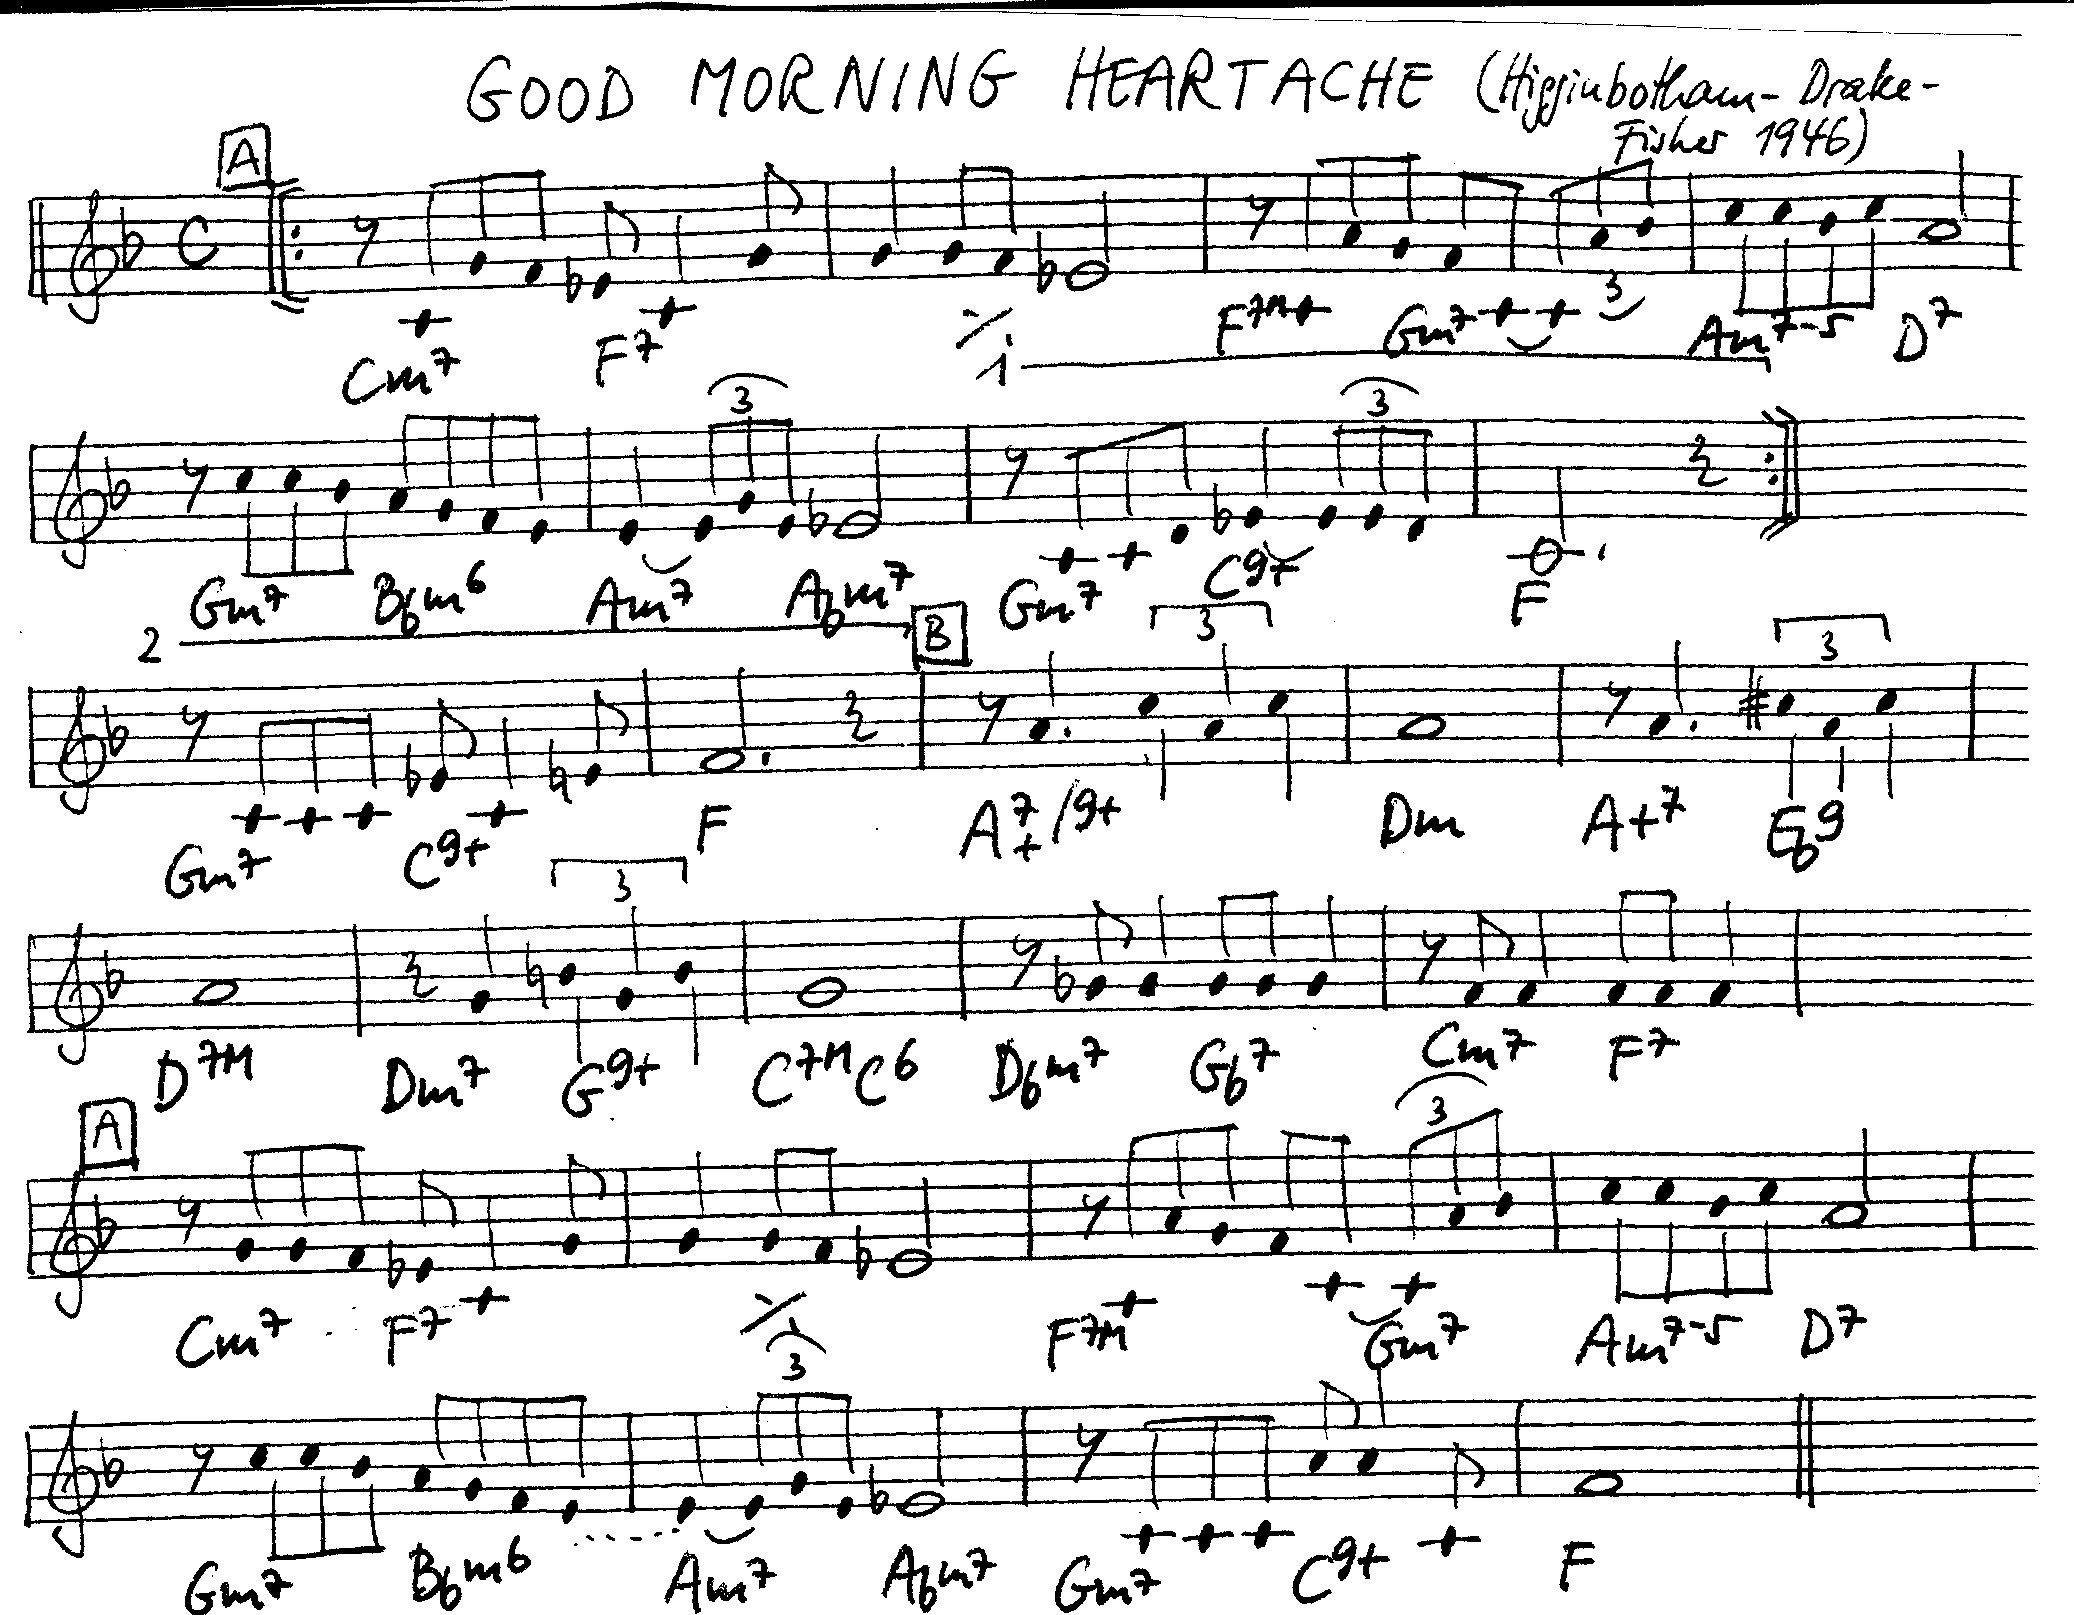 GOOD MORNING HEARTACHE (Higginbotham-Drake-
Fisher 1946)
A
C
3
Cm7 F7 ٪ F7M Gm7 Am7-5 D7
1
3 3
Gm7 Bbm6 Am7 Abm7 Gm7 C9+ F
2 B 3 3
Gm7 C9+ F A7+/9+ Dm A+7 Eb9
3
D7M Dm7 G9+ C7M C6 Dbm7 Gb7 Cm7 F7
A 3
Cm7 F7 ٪ F7M Gm7 Am7-5 D7
3
Gm7 Bbm6 Am7 Abm7 Gm7 C9+ F